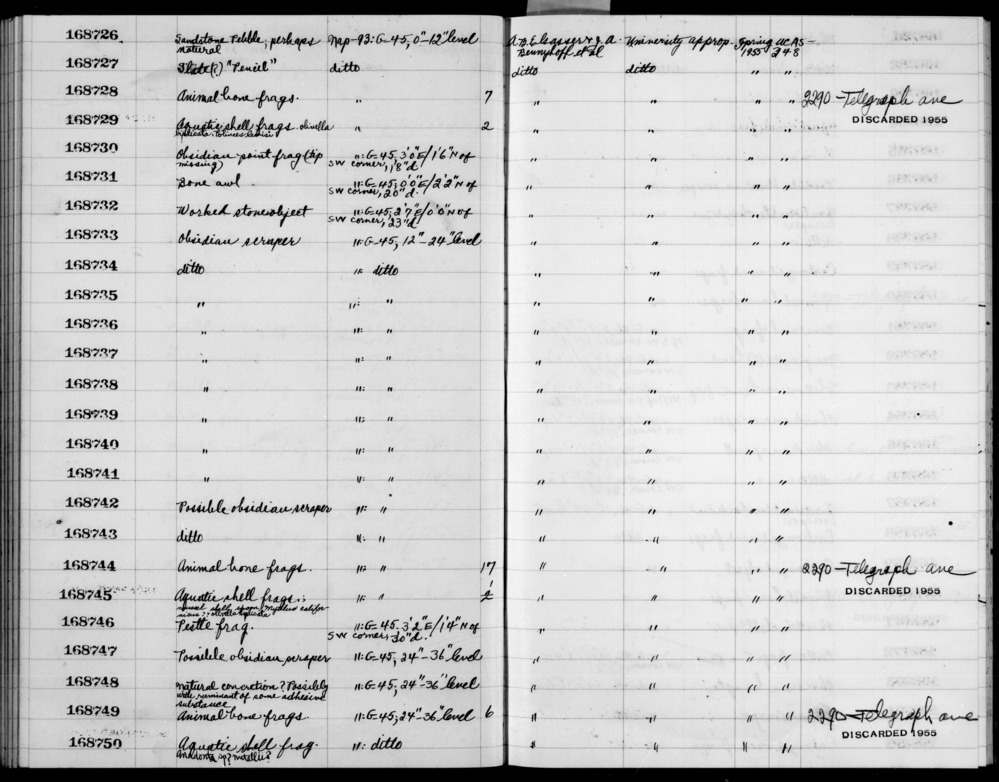 168726 Sandstone Pebble, perhaps natural Nap-93: G-45, 0"-12" level A.B. Elsasser & J.A. Bennyhoff et al University approp. Spring 1955 UCAS-248
168727 Slate(?) "Pencil" ditto ditto ditto " "
168728 Animal bone frags. " 7 " " " " 2290-Telegraph ave
DISCARDED 1955
168729 Aquatic shell frags. olivella " 2 " " " "
168730 Obsidian point frag (tip missing) ": G-45, 3'0"E/1'6"N of SW corner, 1'8"d. " " " "
168731 Bone awl ": G-45, 0'0"E/2'2"N of SW corner, 20"d. " " " "
168732 Worked stone object ": G-45, 2'7"E/0'0"N of SW corner, 23"d. " " " "
168733 Obsidian scraper ": G-45, 12"-24" level " " " "
168734 ditto ": ditto " " " "
168735 " ": " " " " "
168736 " ": " " " " "
168737 " ": " " " " "
168738 " ": " " " " "
168739 " ": " " " " "
168740 " ": " " " " "
168741 " ": " " " " "
168742 Possible obsidian scraper ": " " " " "
168743 ditto ": " " " " "
168744 Animal bone frags. ": " 17 " " " " 2290-Telegraph ave
DISCARDED 1955
168745 Aquatic shell frags.: ": " " " " "
168746 Pestle frag. ": G-45, 3'2"E/1'4"N of SW corner, 30"d. " " " "
168747 Possible obsidian scraper ": G-45, 24"-36" level " " " "
168748 natural concretion? Possibly with remnant of some adhesive substance ": G-45, 24"-36" level " " " "
168749 Animal bone frags. ": G-45, 24"-36" level 6 " " " " 2290-Telegraph ave
DISCARDED 1955
168750 Aquatic shell frag. ": ditto " " " "